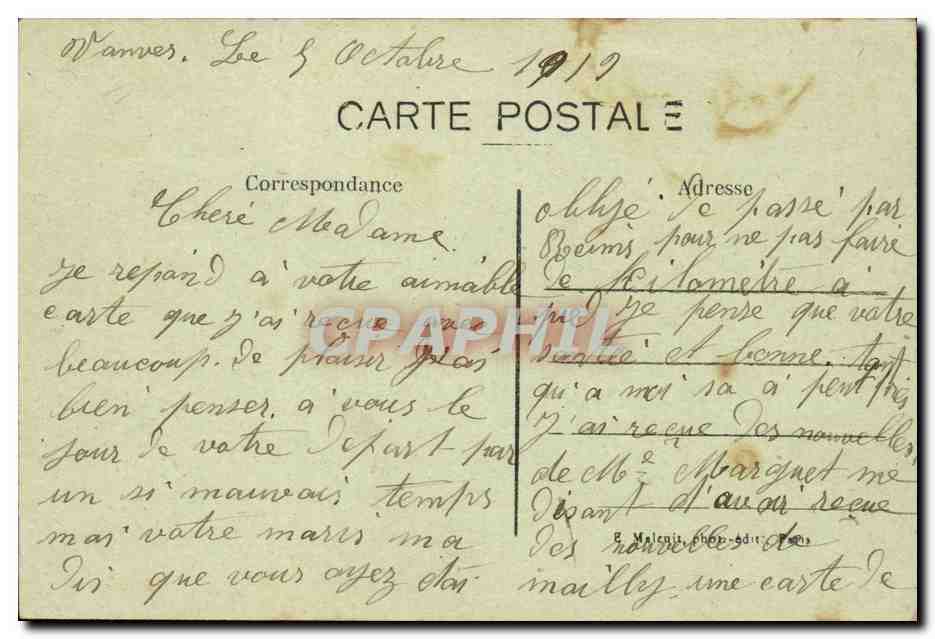 Vanves. Le 5 Octobre 1919
CARTE POSTALE
Correspondance
Cheré Madame.
Je repond a votre aimable
carte que j'ai reçue avec
beaucoup. de plaiser J'ais
bien penser. a vous le
jour de votre depart par
un si mauvais temps
mai votre maris ma
dis que vous ayez étai
Adresse
oblijé. de passé par
Reims pour ne pas faire
de kilometre a
pied Je pense que votre
santié et bonne. tant
qu'a moi sa a peut près
J'ai reçue des nouvelles
de Me Marguet me
disant d'avoir reçue
des nouvelles de
mailly, une carte de
E. Malcuit, phot.-édit. Paris
CPAPHIL